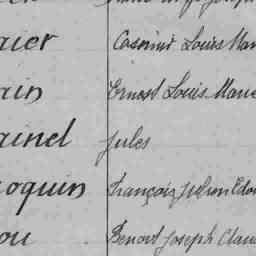 aier Casimir Louis Mar
ain Ernest Louis Marie
ainel Jules
oquin François Julien Edou
ou Benoit Joseph Claud